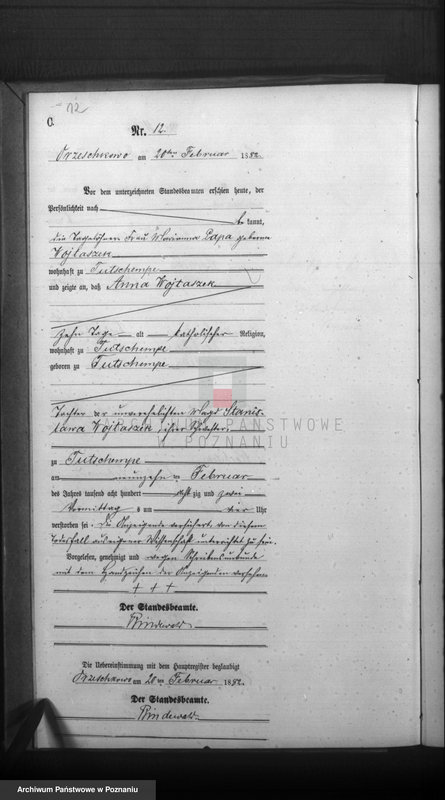 12
C.
Nr. 12.
Orzeschkowo am 20ten Februar 1882.
Vor dem unterzeichneten Standesbeamten erschien heute, der
Persönlichkeit nach
be kannt,
die Tagelöhner Frau Marianna Papa geborene
Wojtaszek
wohnhaft zu Tutschempe
und zeigte an, daß Anna Wojtaszek
Zehn Tage alt katholischer Religion,
wohnhaft zu Tutschempe
geboren zu Tutschempe
Tochter der unverehelichten Magd Stanis-
lawa Wojtaszek, ihrer
ARCHIWUM PAŃSTWOWE
W POZNANIU
zu Tutschempe
am neunzehn ten Februar
des Jahres tausend acht hundert acht zig und zwei
Vormittag s um vier Uhr
verstorben sei. Die Anzeigende versichert, von diesem
Todesfall aus eigener Wissenschaft unterrichtet zu sein.
Vorgelesen, genehmigt und wegen Schreibensunkunde
mit dem Handzeichen der Anzeigenden versehen
+ + +
Der Standesbeamte.
Rindewald
Die Uebereinstimmung mit dem Hauptregister beglaubigt
Orzeschkowo am 20 ten Februar 1882.
Der Standesbeamte.
Rindewald
Archiwum Państwowe w Poznaniu